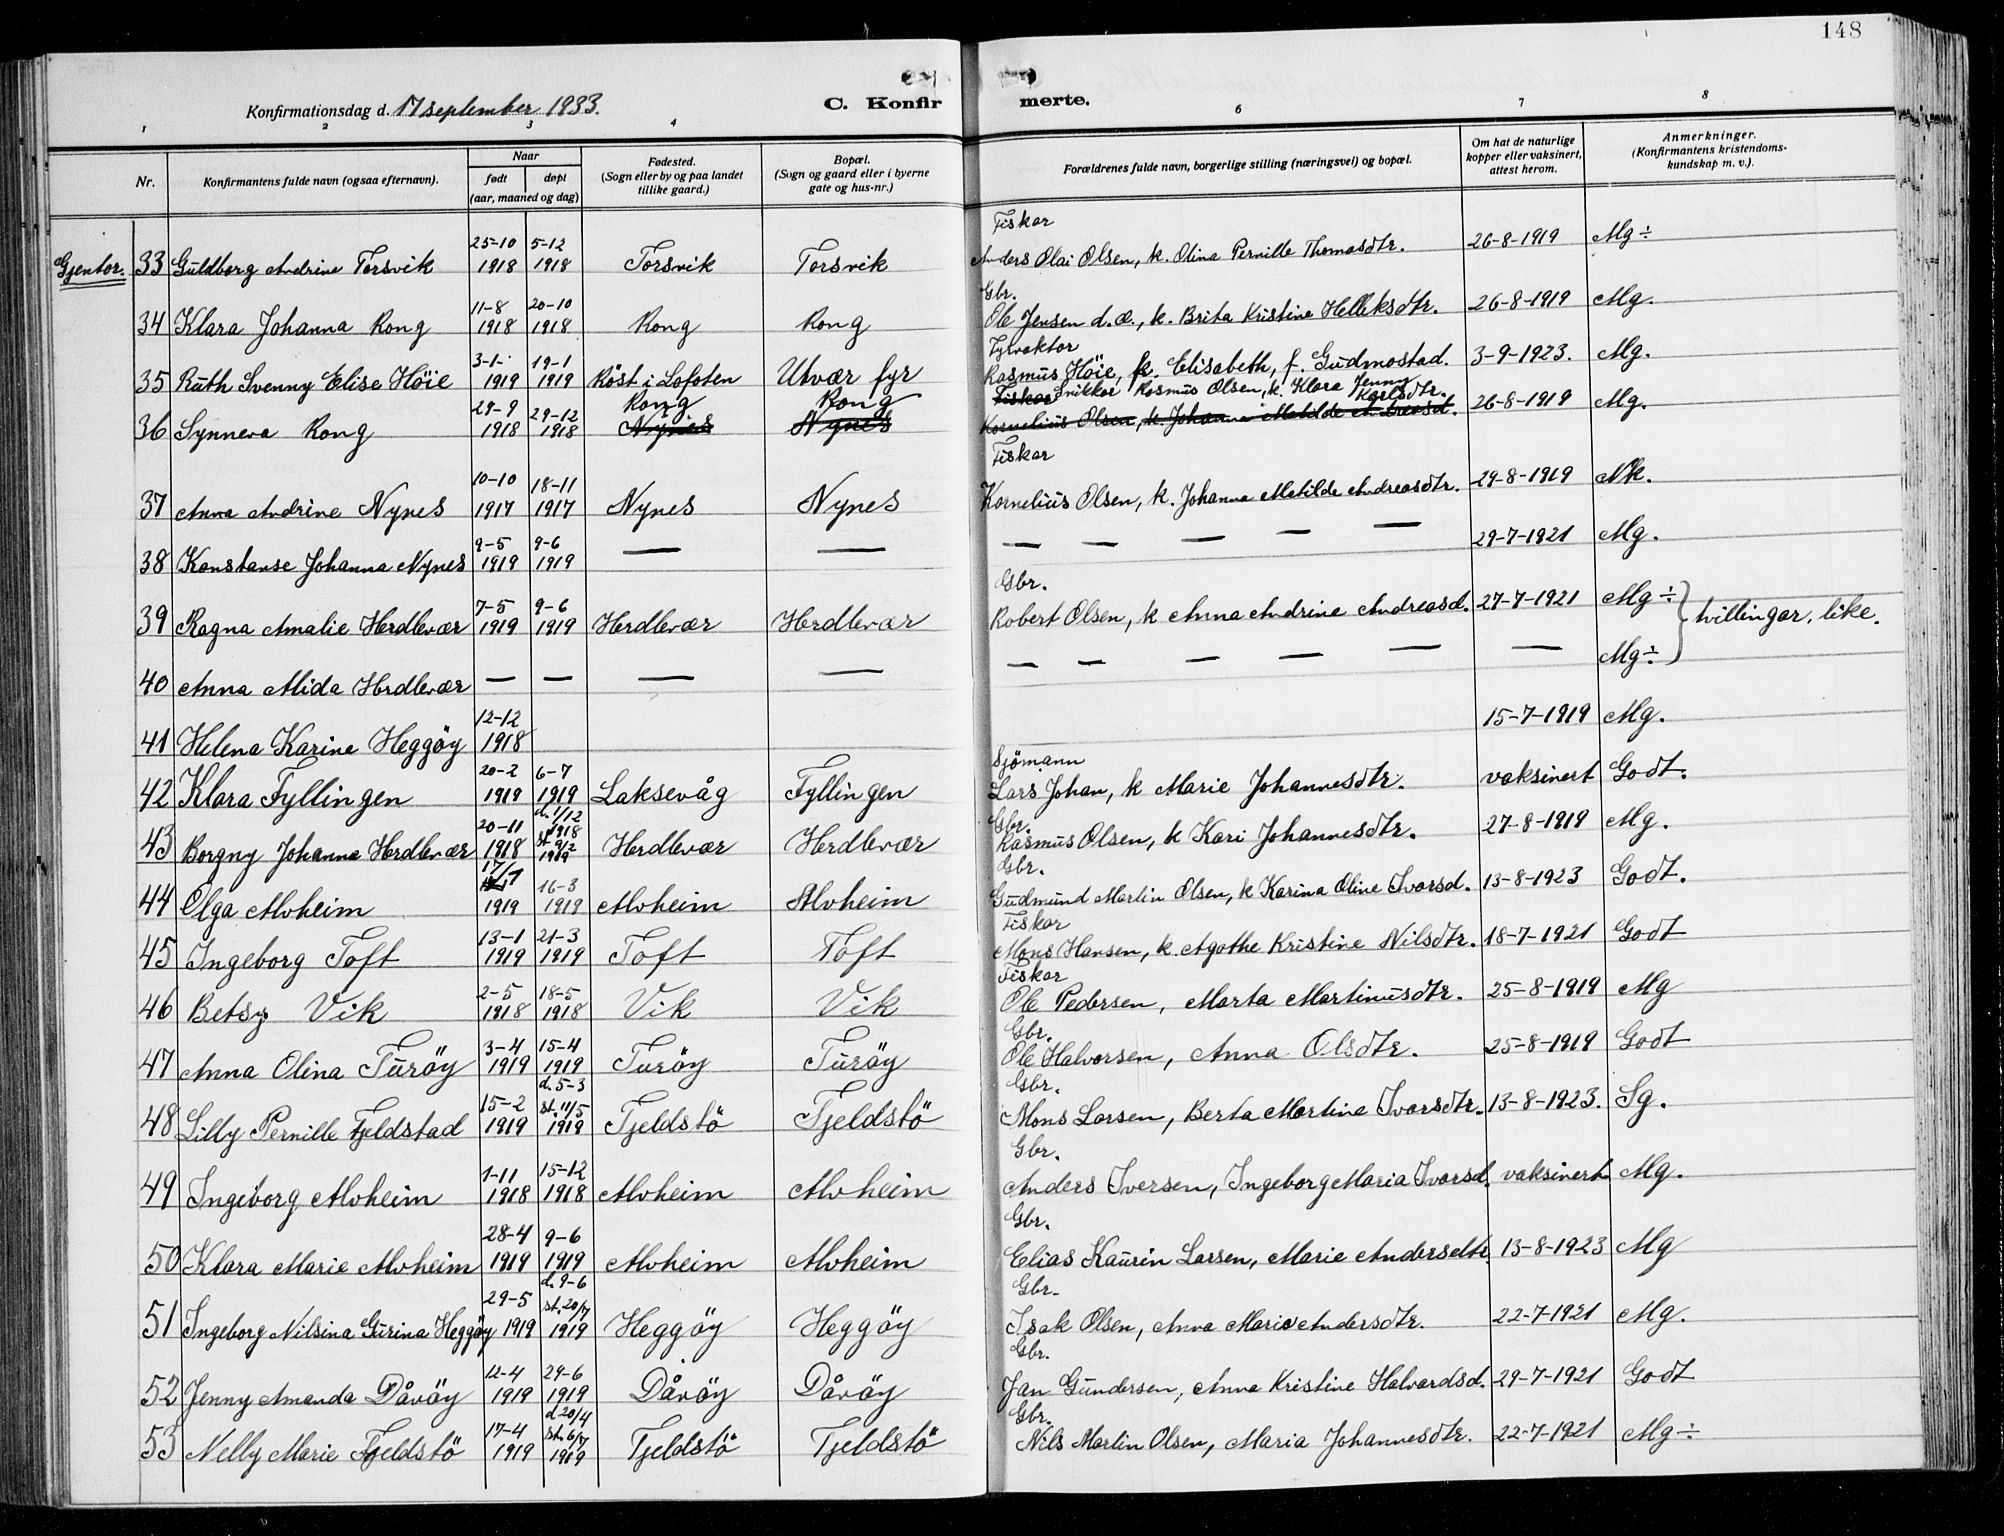 148
Konfirmationsdag d. 17 september 1933.
C. Konfir merte.
1 2 3 4 5 6 7 8
Nr. Konfirmantens fulde navn (ogsaa efternavn). Naar født døpt (aar, maaned og dag) Fødested. (Sogn eller by og paa landet tillike gaard.) Bopæl. (Sogn og gaard eller i byerne gate og hus-nr.) Forældrenes fulde navn, borgerlige stilling (næringsvei) og bopæl. Om hat de naturlige kopper eller vaksinert, attest herom. Anmerkninger. (Konfirmantens kristendoms-kundskap m. v.).
Gjentor. 33 Guldborg Andrine Torsvik 25-10 1918 5-12 1918 Torsvik Torsvik Fiskar Anders Olai Olsen, k. Olina Pernille Thomasdtr. 26-8-1919 Mg ÷
34 Klara Johanna Rong 11-8 1918 20-10 1918 Rong Rong Gbr. Ole Jensen d.æ., k. Brita Kristine Helleksdtr. 26-8-1919 Mg.
35 Ruth Svenny Elise Höie 3-1- 1919 19-1 1919 Röst i Lofoten Utvær fyr Fyrvaktor Rasmus Höie, k. Elisabeth, f. Gudmostad. 3-9-1923. Mg.
36 Synneva Rong 29-9 1918 29-12 1918 Rong Nynes Rong Nynes Fiskar Snikkar Rasmus Olsen, k. Klara Jenny Karlsdtr. Kornelius Olsen, k. Johanna Matilde Andreasd. 26-8-1919 Mg.
37 Anna Andrine Nynes 10-10 1917 18-11 1917 Nynes Nynes Fiskar Kornelius Olsen, k. Johanna Matilde Andreasdtr. 29-8-1919 Nk.
38 Konstanse Johanna Nynes 9-5 1919 9-6 1919 — — — — — — 29-7-1921 Mg.
39 Ragna Amalie Herdlevær 7-5 1919 9-6 1919 Herdlevær Herdlevær Gbr. Robert Olsen, k Anna Andrine Andreasd. 27-7-1921 Mg ÷ } tvillingar, like.
40 Anna Alida Herdlevær — — — — — — — — — — Mg ÷
41 Helena Karine Heggöy 12-12 1918 15-7-1919 Mg.
42 Klara Fyllingen 20-2 1919 6-7 1919 Laksevåg Fyllingen Sjömann Lars Johan, k Marie Johannesdtr. vaksinert Godt.
43 Borgny Johanna Herdlevær 20-11 1918 d. 1/12 1918 st. 9/2 1919 Herdlevær Herdlevær Gbr. Rasmus Olsen, k Kari Johannesdtr. 27-8-1919 Mg.
44 Olga Alvheim 17/1 1919 16-3 1919 Alvheim Alvheim Gbr. Gudmund Martin Olsen, k Karina Oline Ivarsd. 13-8-1923 Godt.
45 Ingeborg Toft 13-1 1919 21-3 1919 Toft Toft Fiskar Mons Hansen, k. Agathe Kristine Nilsdtr. 18-7-1921 Godt
46 Betsy Vik 2-5 1918 18-5 1918 Vik Vik Fiskar Ole Pedersen, Marta Martinusdtr. 25-8-1919 Mg
47 Anna Olina Turöy 3-4 1919 15-4 1919 Turöy Turöy Gbr. Ole Halvorsen, Anna Olsdtr. 25-8-1919 Godt
48 Lilly Pernille Fjeldstad 15-2 1919 d. 5-3 st. 11/5 1919 Fjeldstö Fjeldstö Gbr. Mons Larsen, Berta Martine Ivarsdtr. 13-8-1923. Sg.
49 Ingeborg Alvheim 1-11 1918 15-12 1918 Alvheim Alvheim Gbr. Anders Iversen, Ingeborg Maria Ivarsd. vaksinert Mg.
50 Klara Marie Alvheim 28-4 1919 9-6 1919 Alvheim Alvheim Gbr. Elias Kaurin Larsen, Marie Andersdtr. 13-8-1923 Mg
51 Ingeborg Nilsina Gurina Heggöy 29-5 1919 d. 9-6 st. 20/7 1919 Heggöy Heggöy Gbr. Isak Olsen, Anna Marie Andersdtr. 22-7-1921 Mg.
52 Jenny Amanda Dåvöy 12-4 1919 29-6 1919 Dåvöy Dåvöy Gbr. Jan Gundersen, Anna Kristine Halvardsd. 29-7-1921 Godt
53 Nelly Marie Fjeldstö 17-4 1919 d 20/4 st. 6/7 1919 Fjeldstö Fjeldstö Gbr. Nils Martin Olsen, Maria Johannesdtr. 22-7-1921 Mg ÷